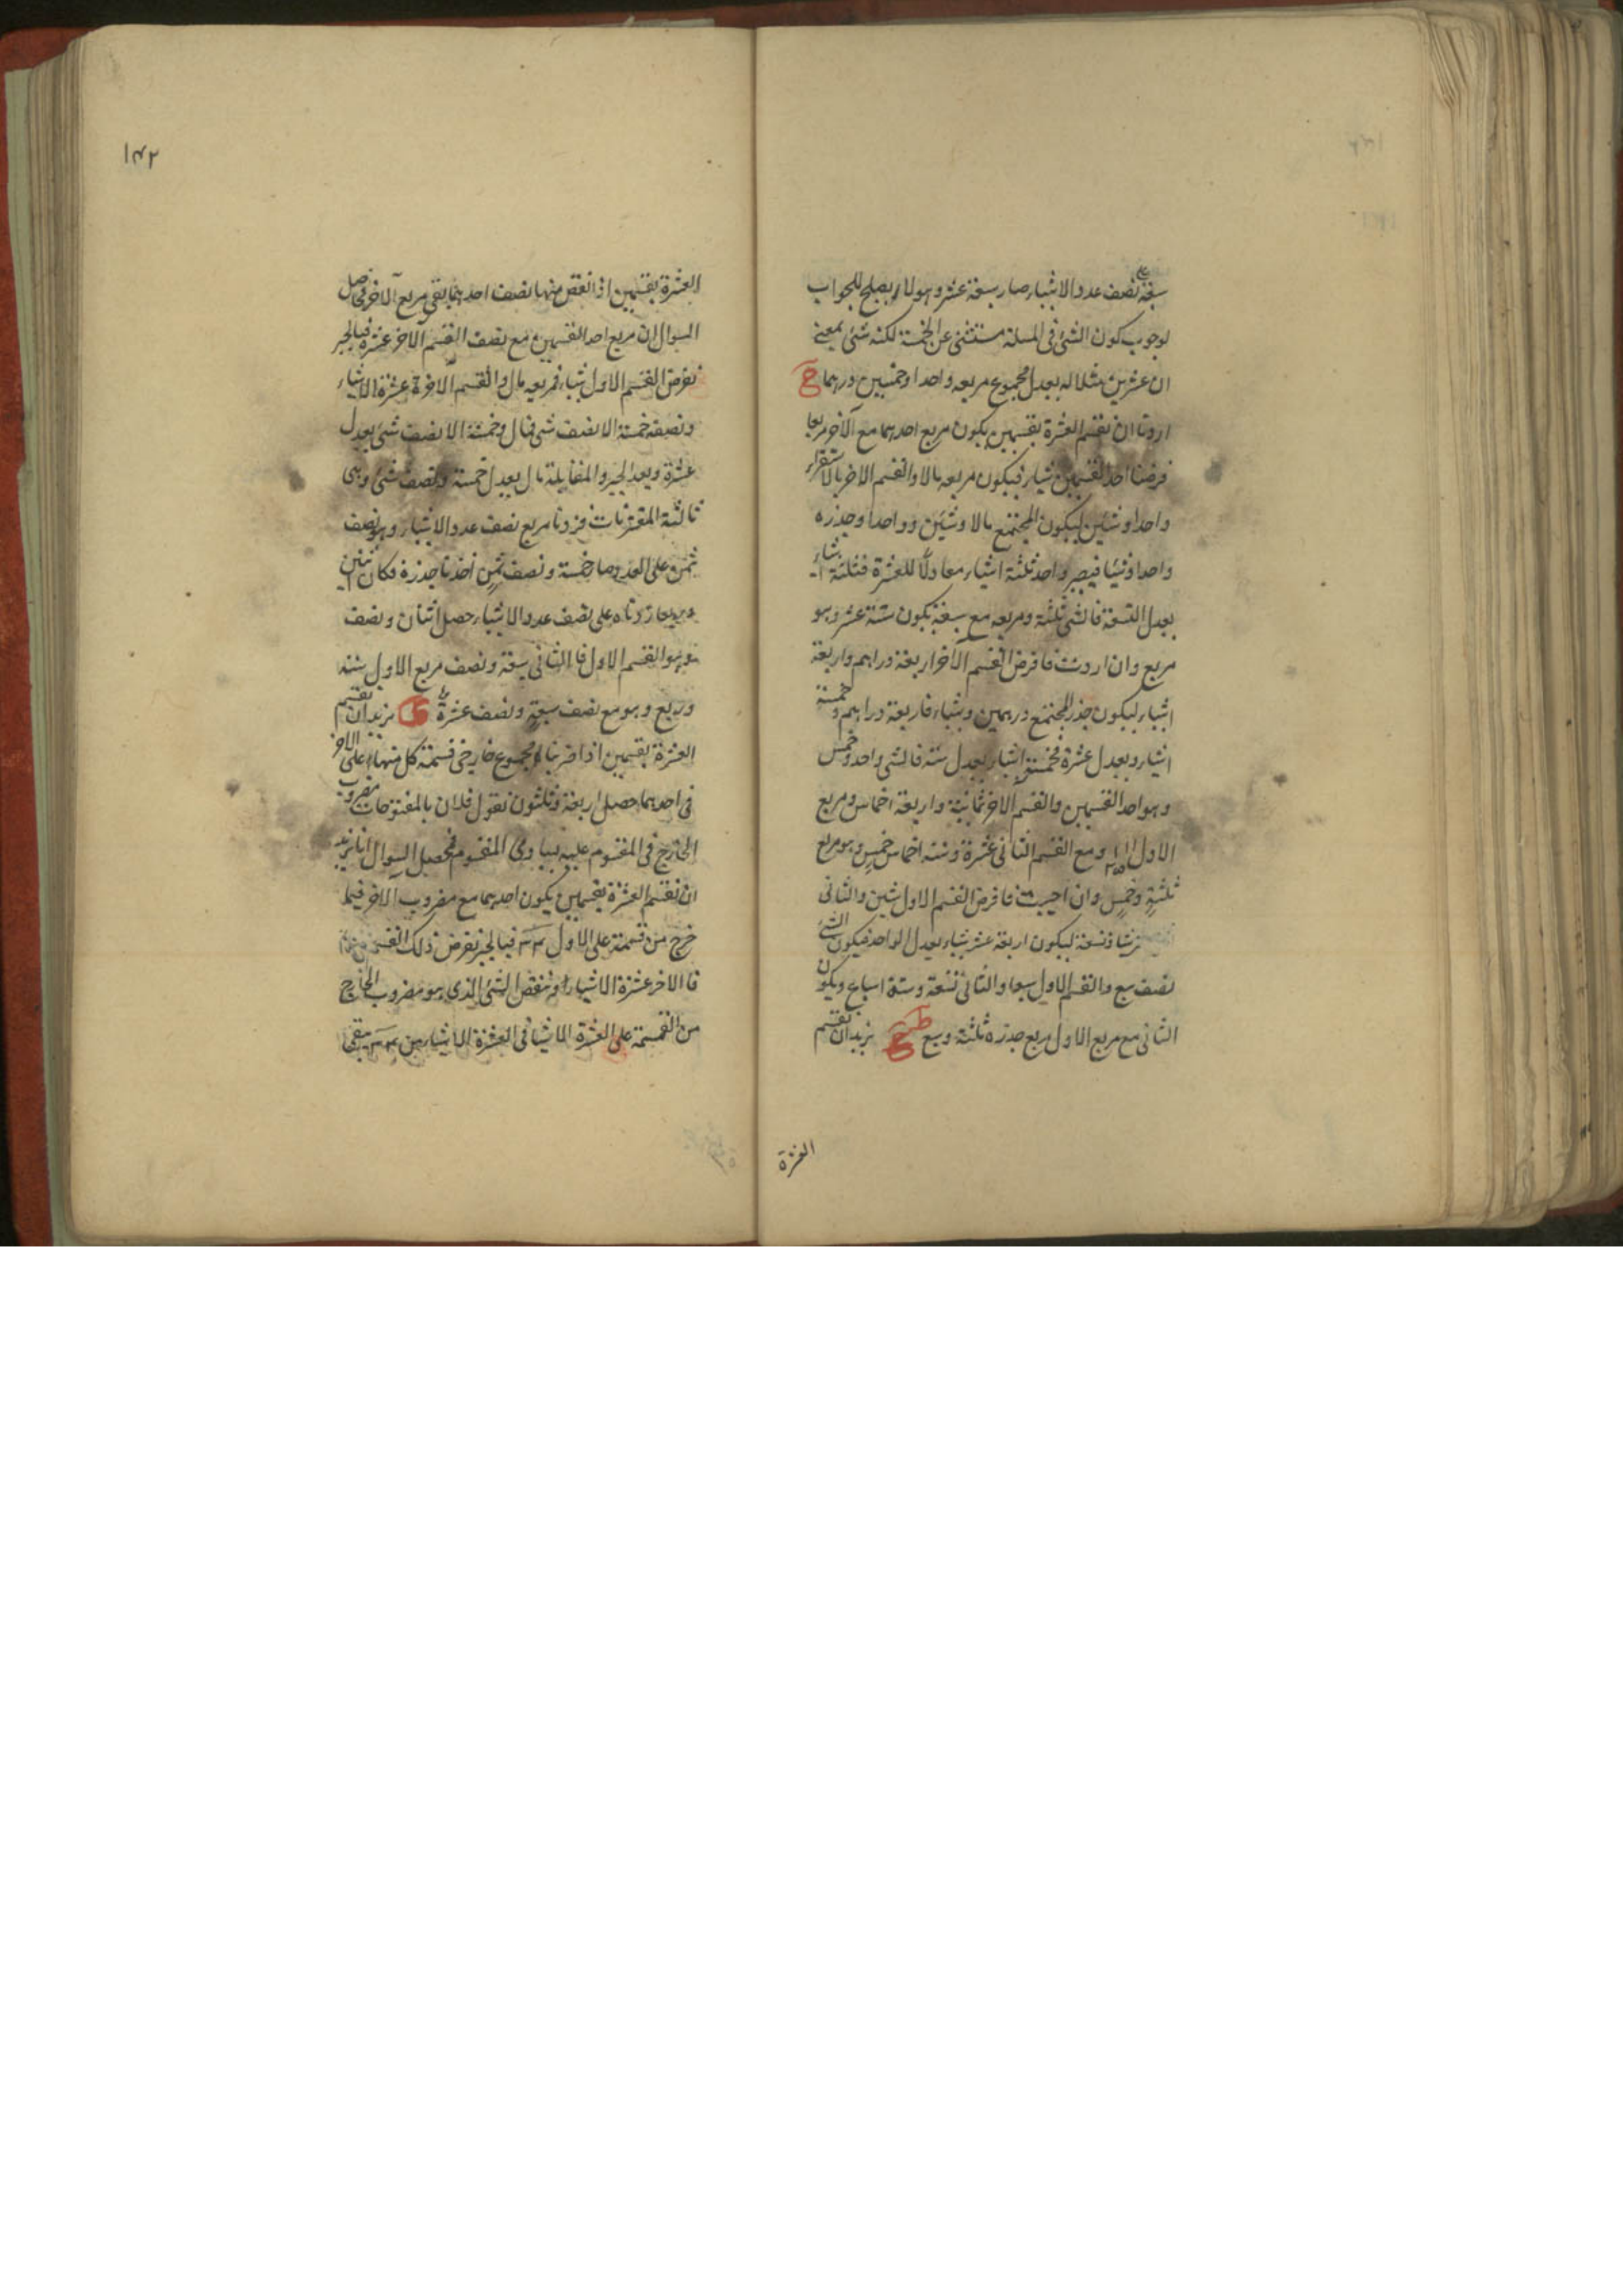 سبعة على نصف عدد الاشياء صار سبعة عشر وهو لا يصلح للجواب
لوجوب كون الشئ فى المسلة مستثنى عن الخمسة لكنه شئ بمعنى
ان عشرين مثلا له يعدل مجموع مربعه واحدا وخمسين درهما ح
اردنا ان نقسم العشرة بقسمين يكون مربع احدهما مع الآخر مربعا
فرضنا احد القسمين شيا فيكون مربعه مالا والقسم الاخر بالاستقراء
واحدا وشيئين ليكون المجتمع مالا وشيئين وواحدا وجذره
واحدا وشيئا فيصير واحد ثلثة اشياء معادلا للعشرة فثلثة اشياء
يعدل التسعة فالشئ ثلثة ومربعه مع سبعة يكون ستة عشر وهو
مربع وان اردت فافرض القسم الآخر اربعة دراهم واربعة
اشياء ليكون جذر المجتمع درهمين وشياء فاربعة دراهم وخمسة
اشياء يعدل عشرة فخمسة اشياء يعدل ستة فالشئ واحد وخمس
وهو احد القسمين والقسم الآخر ثمانية واربعة اخماس ومربع
الاول ومع القسم الثانى عشرة وستة اخماس خمس وهو مربع
ثلثة وخمس وان احببت فافرض القسم الاول شيئين والثانى
وتسعة ليكون اربعة عشر شياء يعدل الواحد فيكون الشئ
نصف سبع والقسم الاول سبعا والثانى تسعة وستة اسباع ويكون
الثانى مع مربع الاول مربع جذره ثلثة وسبع نريد ان نقسم
العشرة
١٤٢
العشرة بقسمين اذا نقص منها نصف احدهما بقى مربع الآخر فحاصل
السوال ان مربع احد القسمين مع نصف القسم الآخر عشرة فبالجبر
نفرض القسم الاول شياء فمربعه مال والقسم الآخر عشرة الا شياء
ونصفه خمسة الا نصف شئ فمال وخمسة الا نصف شئ يعدل
عشرة وبعد الجبر والمقابلة مال يعدل خمسة ونصف شئ وهى
ثالثة المقترنات فزدنا مربع نصف عدد الاشياء وهو نصف
ثمن على العدد صار خمسة ونصف ثمن اخذنا جذره فكان اثنين
وربعا زدناه على نصف عدد الاشياء حصل اثنان ونصف
وهو القسم الاول فالثانى سبعة ونصف مربع الاول ستة
وربع وهو مع نصف سبعة ونصف عشرة ى نريد ان نقسم
العشرة بقسمين اذا ضربنا مجموع خارجى قسمة كل منهما على الاخر
فى احدهما حصل اربعة وثلثون نقول فلان بالمفتوحات مضروب
الخارج فى المقسوم عليه يساوى المقسوم فحصل السوال انا نريد
ان نقسم العشرة بقسمين يكون احدهما مع مضروب الآخر فيما
خرج من قسمة على الاول ٣٤ فبالجبر نفرض ذلك القسم شياء
فالاخر عشرة الا شياء ثم ننقص الشئ الذى هو مضروب الخارج
من القسمة على العشرة الا شيا فى العشرة الا شياء من ٣٤ يبقى